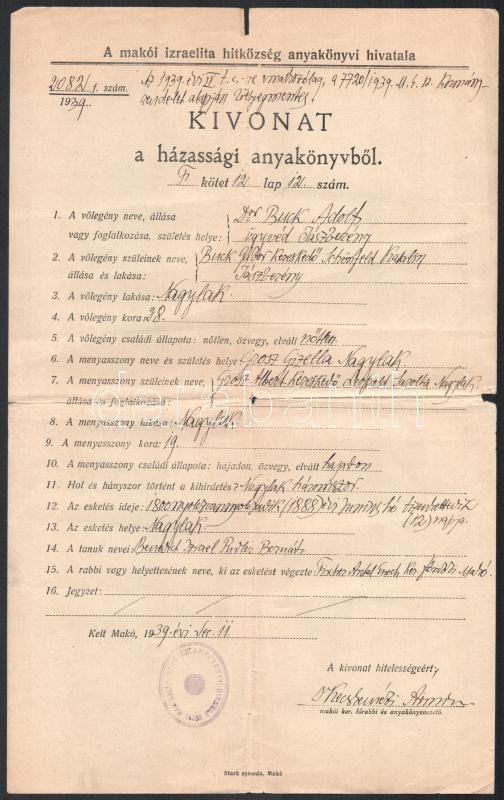 A makói izraelita hitközség anyakönyvi hivatala
2082/ f. szám.
1939.
Az 1939. évi IV. t. c.-re vonatkozólag, a 7720/1939. M. E. sz. Kormány-
rendelet alapján bélyegmentes!
KIVONAT
a házassági anyakönyvből.
II kötet 12 lap 12. szám.
1. A vőlegény neve, állása Dr Buck Adolf
vagy foglalkozása, születés helye: ügyvéd Jászberény
2. A vőlegény szüleinek neve, Buck Gábor kereskedő Schönfeld Katalin
állása és lakása: Jászberény
3. A vőlegény lakása: Nagylak.
4. A vőlegény kora: 28.
5. A vőlegény családi állapota: nőtlen, özvegy, elvált nőtlen.
6. A menyasszony neve és születés helye: Grosz Gizella Nagylak
7. A menyasszony szüleinek neve, Grosz Albert kereskedő Leopold Sarolta Nagylak
állása és foglalkozása:
8. A menyasszony lakása: Nagylak.
9. A menyasszony kora: 19.
10. A menyasszony családi állapota: hajadon, özvegy, elvált hajdon
11. Hol és hányszor történt a kihirdetés? Nagylak háromszor.
12. Az esketés ideje: 1800nyolczvannyolczadik (1888) évi Junius hó tizenkettedik
(12) napja.
13. Az esketés helye: Nagylak.
14. A tanuk nevei: Benedek Izrael Bernát
15. A rabbi vagy helyettesének neve, ki az esketést végezte: Fischer Antal Enoch ker. főrabbi Makó.
16. Jegyzet:
Kelt Makó, 1939. évi dec. 11
A kivonat hitelességeért:
Dr Kecskeméti Ármin
makói ker. főrabbi és anyakönyvvezető.
Stark nyomda, Makó
darabanth